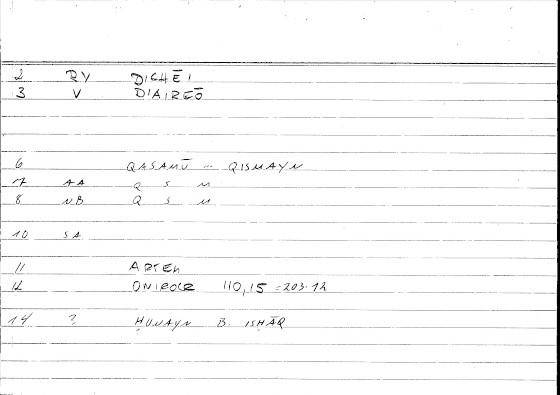 2 RV DICHĒI
3 V DIAIREŌ
6 QASAMŪ ... QISMAYN
7 AA Q S M
8 NB Q S M
10 SA
11 ARTEM
12 ONIROCR 110,15 = 203.12
14 ? ḤUNAYN B. ISḤĀQ